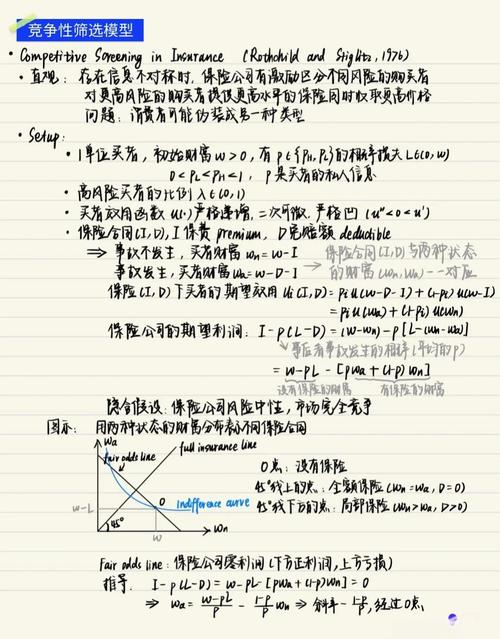 竞争性筛选模型
• Competitive Screening in Insurance (Rothchild and Stiglitz, 1976)
• 直观：存在信息不对称时，保险公司有激励区分不同风险的购买者
对更高风险的购买者提供更高水平的保险同时收取更高价格
问题：消费者可能伪装成另一种类型
• Setup：
• 1单位买者，初始财富 w>0，有 p∈{PH, PL}的概率损失 L∈(0, w)
0<PL<PH<1，p是买者的私人信息
• 高风险买者的比例 λ∈(0,1)
• 买者效用函数 u(·)严格递增，二次可微，严格凹 (u''<0<u')
• 保险合同(I,D)，I 保费 premium，D免赔额 deductible
⇒ 事故不发生，买者财富 wn=w-I
事故发生，买者财富 wa=w-D-I
→ 保险合同(I,D)与两种状态
的财富(wn,wa)一一对应
保险(I,D)下买者的期望效用 Ui(I,D)=piu(w-D-I)+(1-pi)u(w-I)
=piu(wa)+(1-pi)u(wn)
保险公司的期望利润：I-p(L-D)=(w-wn)-p[L-(wn-wa)]
→事后看事故发生的概率(平均的p)
=w-pL-[pwa+(1-p)wn]
没有保险的财富 有保险的财富
隐含假设：保险公司风险中性，市场完全竞争
图示：用两种状态的财富分布表示不同保险合同
wa
full insurance line
fair odds line
0
indifference curve
w-L
45°
w
wn
0点：没有保险
45°线上的点：全额保险(wn=wa, D=0)
45°线下方的点：局部保险(wn>wa, D>0)
Fair odds line：保险公司零利润(下方正利润，上方亏损)
推导：I-p(L-D)=w-pL-[pwa+(1-p)wn]=0
⇒ wa=w-pL/p - 1-p/p wn ⇒ 斜率 - 1-p/p，经过0点